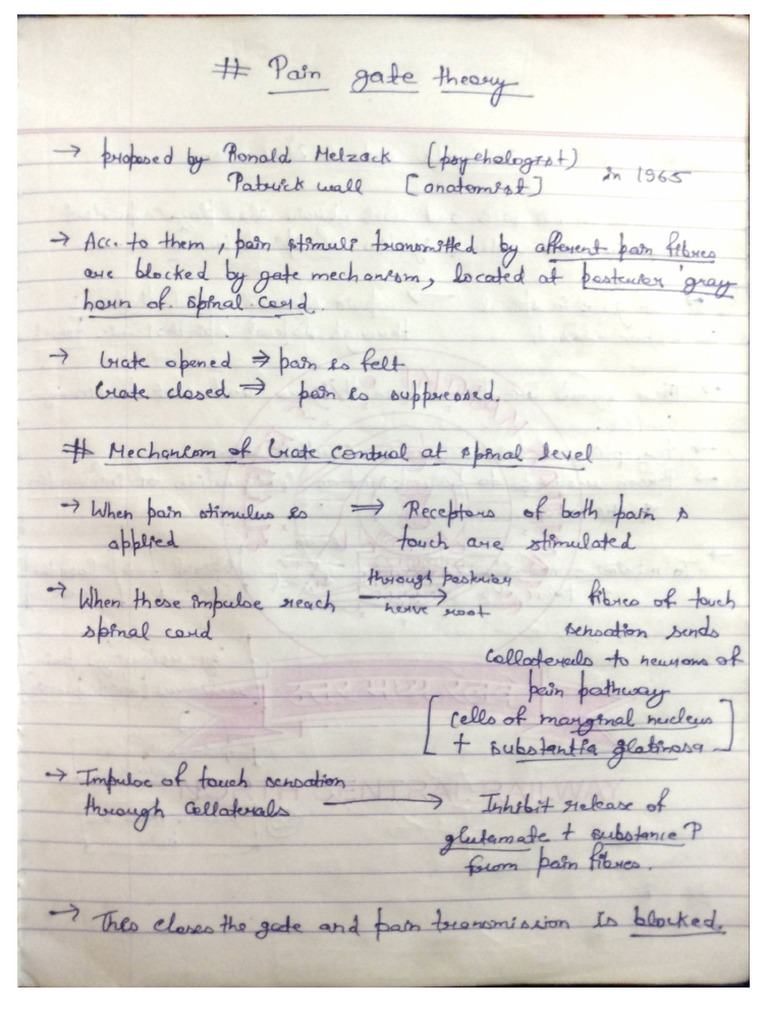 # Pain gate theory
→ proposed by Ronald Melzack (psychologist)
Patrick wall [anatomist] in 1965
→ Acc. to them, pain stimuli transmitted by afferent pain fibres
are blocked by gate mechanism, located at posterior gray
horn of spinal cord.
→ Gate opened ⇒ pain is felt
Gate closed ⇒ pain is suppressed.
# Mechanism of Gate control at spinal level
→ When pain stimulus is ⇒ Receptors of both pain &
applied touch are stimulated
→ When these impulse reach through posterior nerve root → fibres of touch
spinal cord sensation sends
collaterals to neurons of
pain pathway
[cells of marginal nucleus
+ substantia glatinosa]
→ Impulse of touch sensation
through collaterals → Inhibit release of
glutamate + substance P
from pain fibres.
→ This closes the gate and pain transmission is blocked.